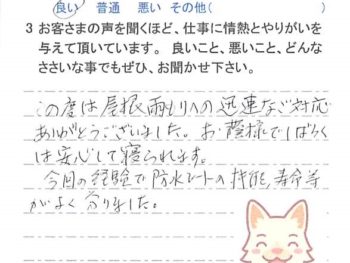 良い 普通 悪い その他( )
3 お客さまの声を聞くほど、仕事に情熱とやりがいを
与えて頂いています。 良いこと、悪いこと、どんな
ささいな事でもぜひ、お聞かせ下さい。
この度は屋根雨もりへの迅速なご対応
ありがとうございました。お蔭様でしばらく
は安心して寝られます。
今回の経験で防水シートの性能、寿命等
がよく分りました。